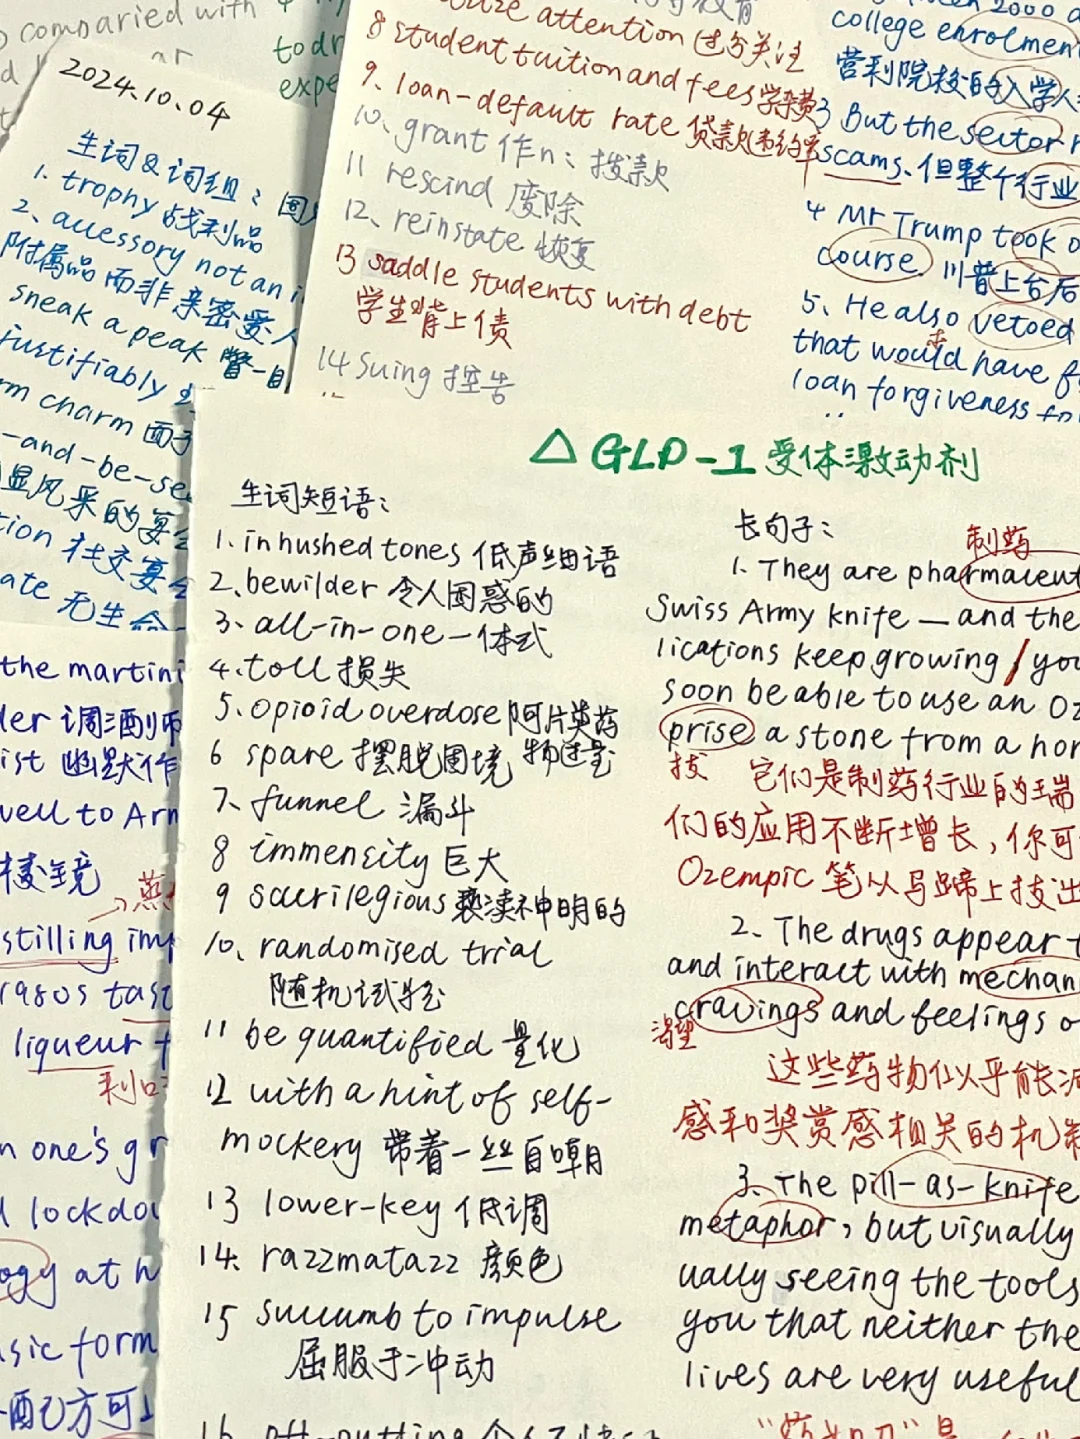 comparied with
todr
expe
2024.10.04
生词&词组：
1. trophy 战利品
2. accessory not an i
附属品而非亲密爱人
sneak a peak 瞥一眼
justifiably
rm charm 面子
-and-be-se
显风采的宴会
tion 社交宴会
ate 无生命
attention 过分关注
8 student tuition and fees 学杂费
9. loan-default rate 贷款违约率
10、grant 作n：拨款
11 rescind 废除
12、reinstate 恢复
13 saddle students with debt
学生背上债
14 Suing 控告
2000 a
college enrolmen
营利院校的入学人
3 But the sector
scams、但整个行业
4 Mr Trump took o
course. 川普上台后
5、He also vetoed
that would have f
loan forgiveness for
the martini
der 调酒师
ist 幽默作
well to Arm
棱镜
stilling imp
1980s tast
liqueur t
利口
n one's gr
d lockdow
ogy at h
usic form
配方可以
△ GLP-1 受体激动剂
生词短语：
1. in hushed tones 低声细语
2. bewilder 令人困惑的
3. all-in-one 一体式
4. toll 损失
5. opioid overdose 阿片类药
物过量
6 spare 摆脱困境
7、funnel 漏斗
8 immensity 巨大
9 sacrilegious 亵渎神明的
10、randomised trial
随机试验
11 be quantified 量化
12 with a hint of self-
mockery 带着一丝自嘲
13 lower-key 低调
14. razzmatazz 颜色
15 succumb to impulse
屈服于冲动
16 off-putting
长句子：
制药
1. They are pharmaceut
Swiss Army knife — and the
lications keep growing / you
soon be able to use an Oz
prise a stone from a hor
拔 它们是制药行业的瑞
们的应用不断增长，你可
Ozempic 笔从马蹄上拔出
2. The drugs appear t
and interact with mechan
cravings and feelings o
渴望
这些药物似乎能减
感和奖赏感相关的机制
3. The pill-as-knife
metaphor, but visually
ually seeing the tools
you that neither the
lives are very useful